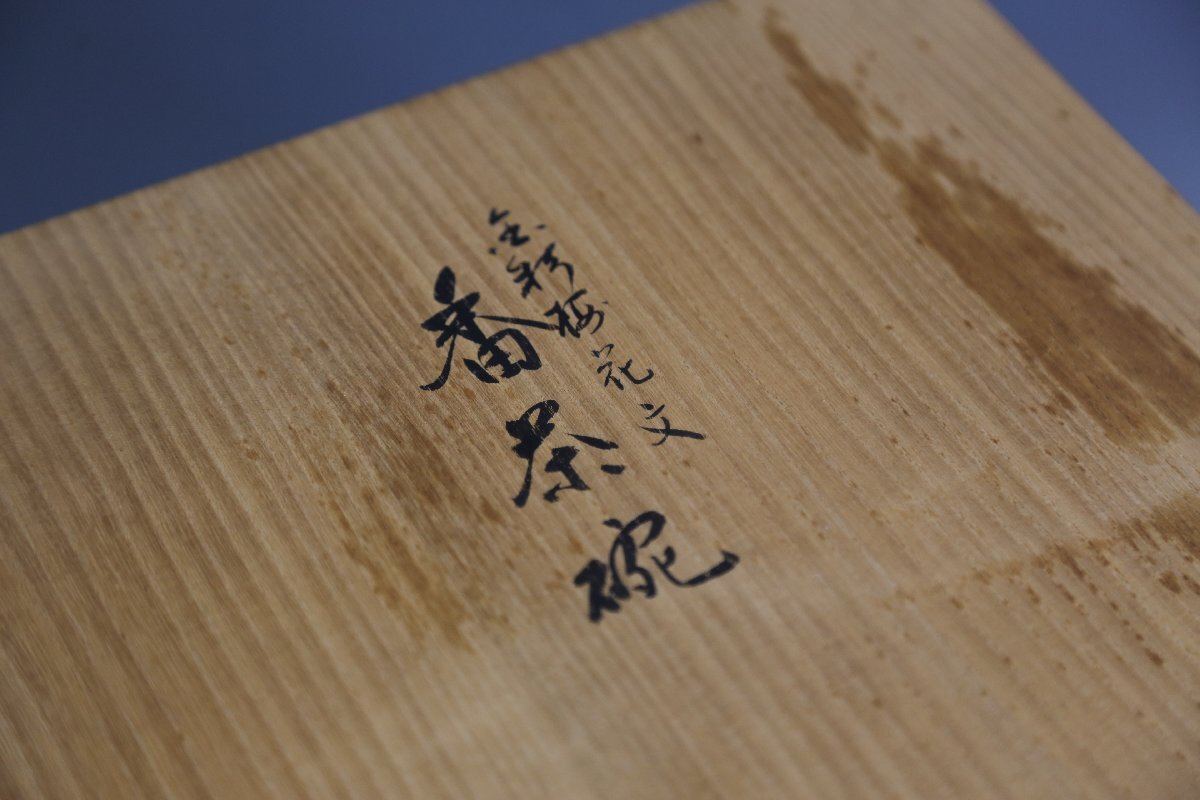 金彩梅花文
番茶碗